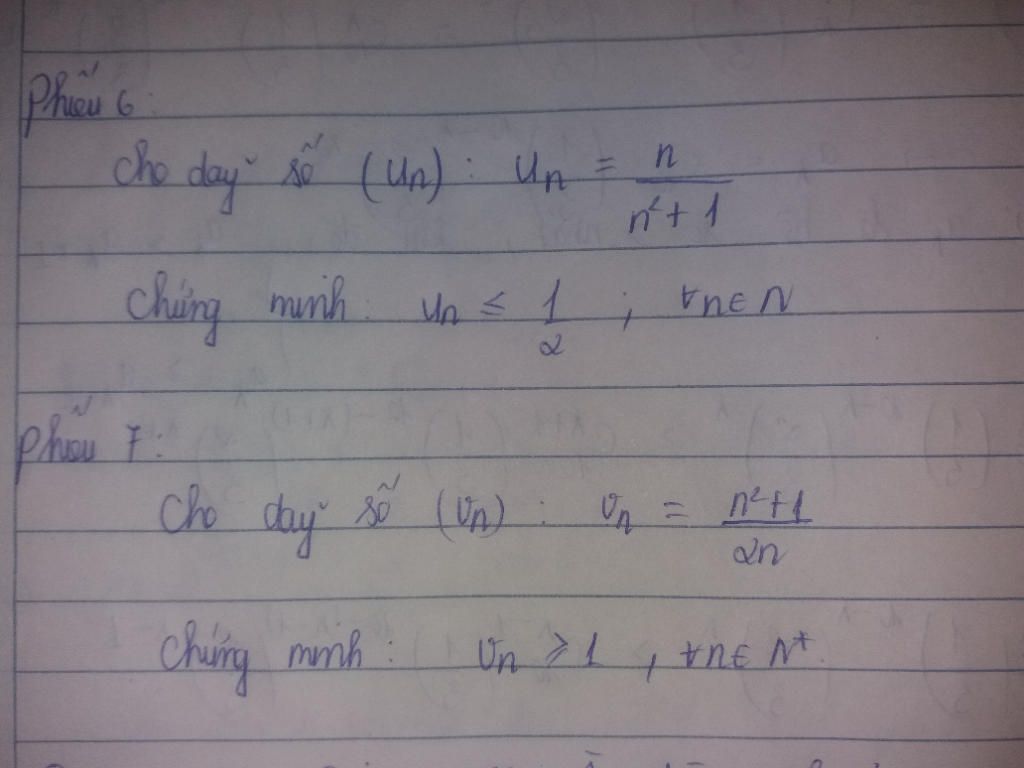 Phiếu 6:
Cho dãy số (Un) : Un = n / n²+1
Chứng minh : Un ≤ 1/2 ; ∀n∈N
Phiếu 7:
Cho dãy số (Vn) : Vn = n²+1 / 2n
Chứng minh : Vn ≥ 1 , ∀n∈N*